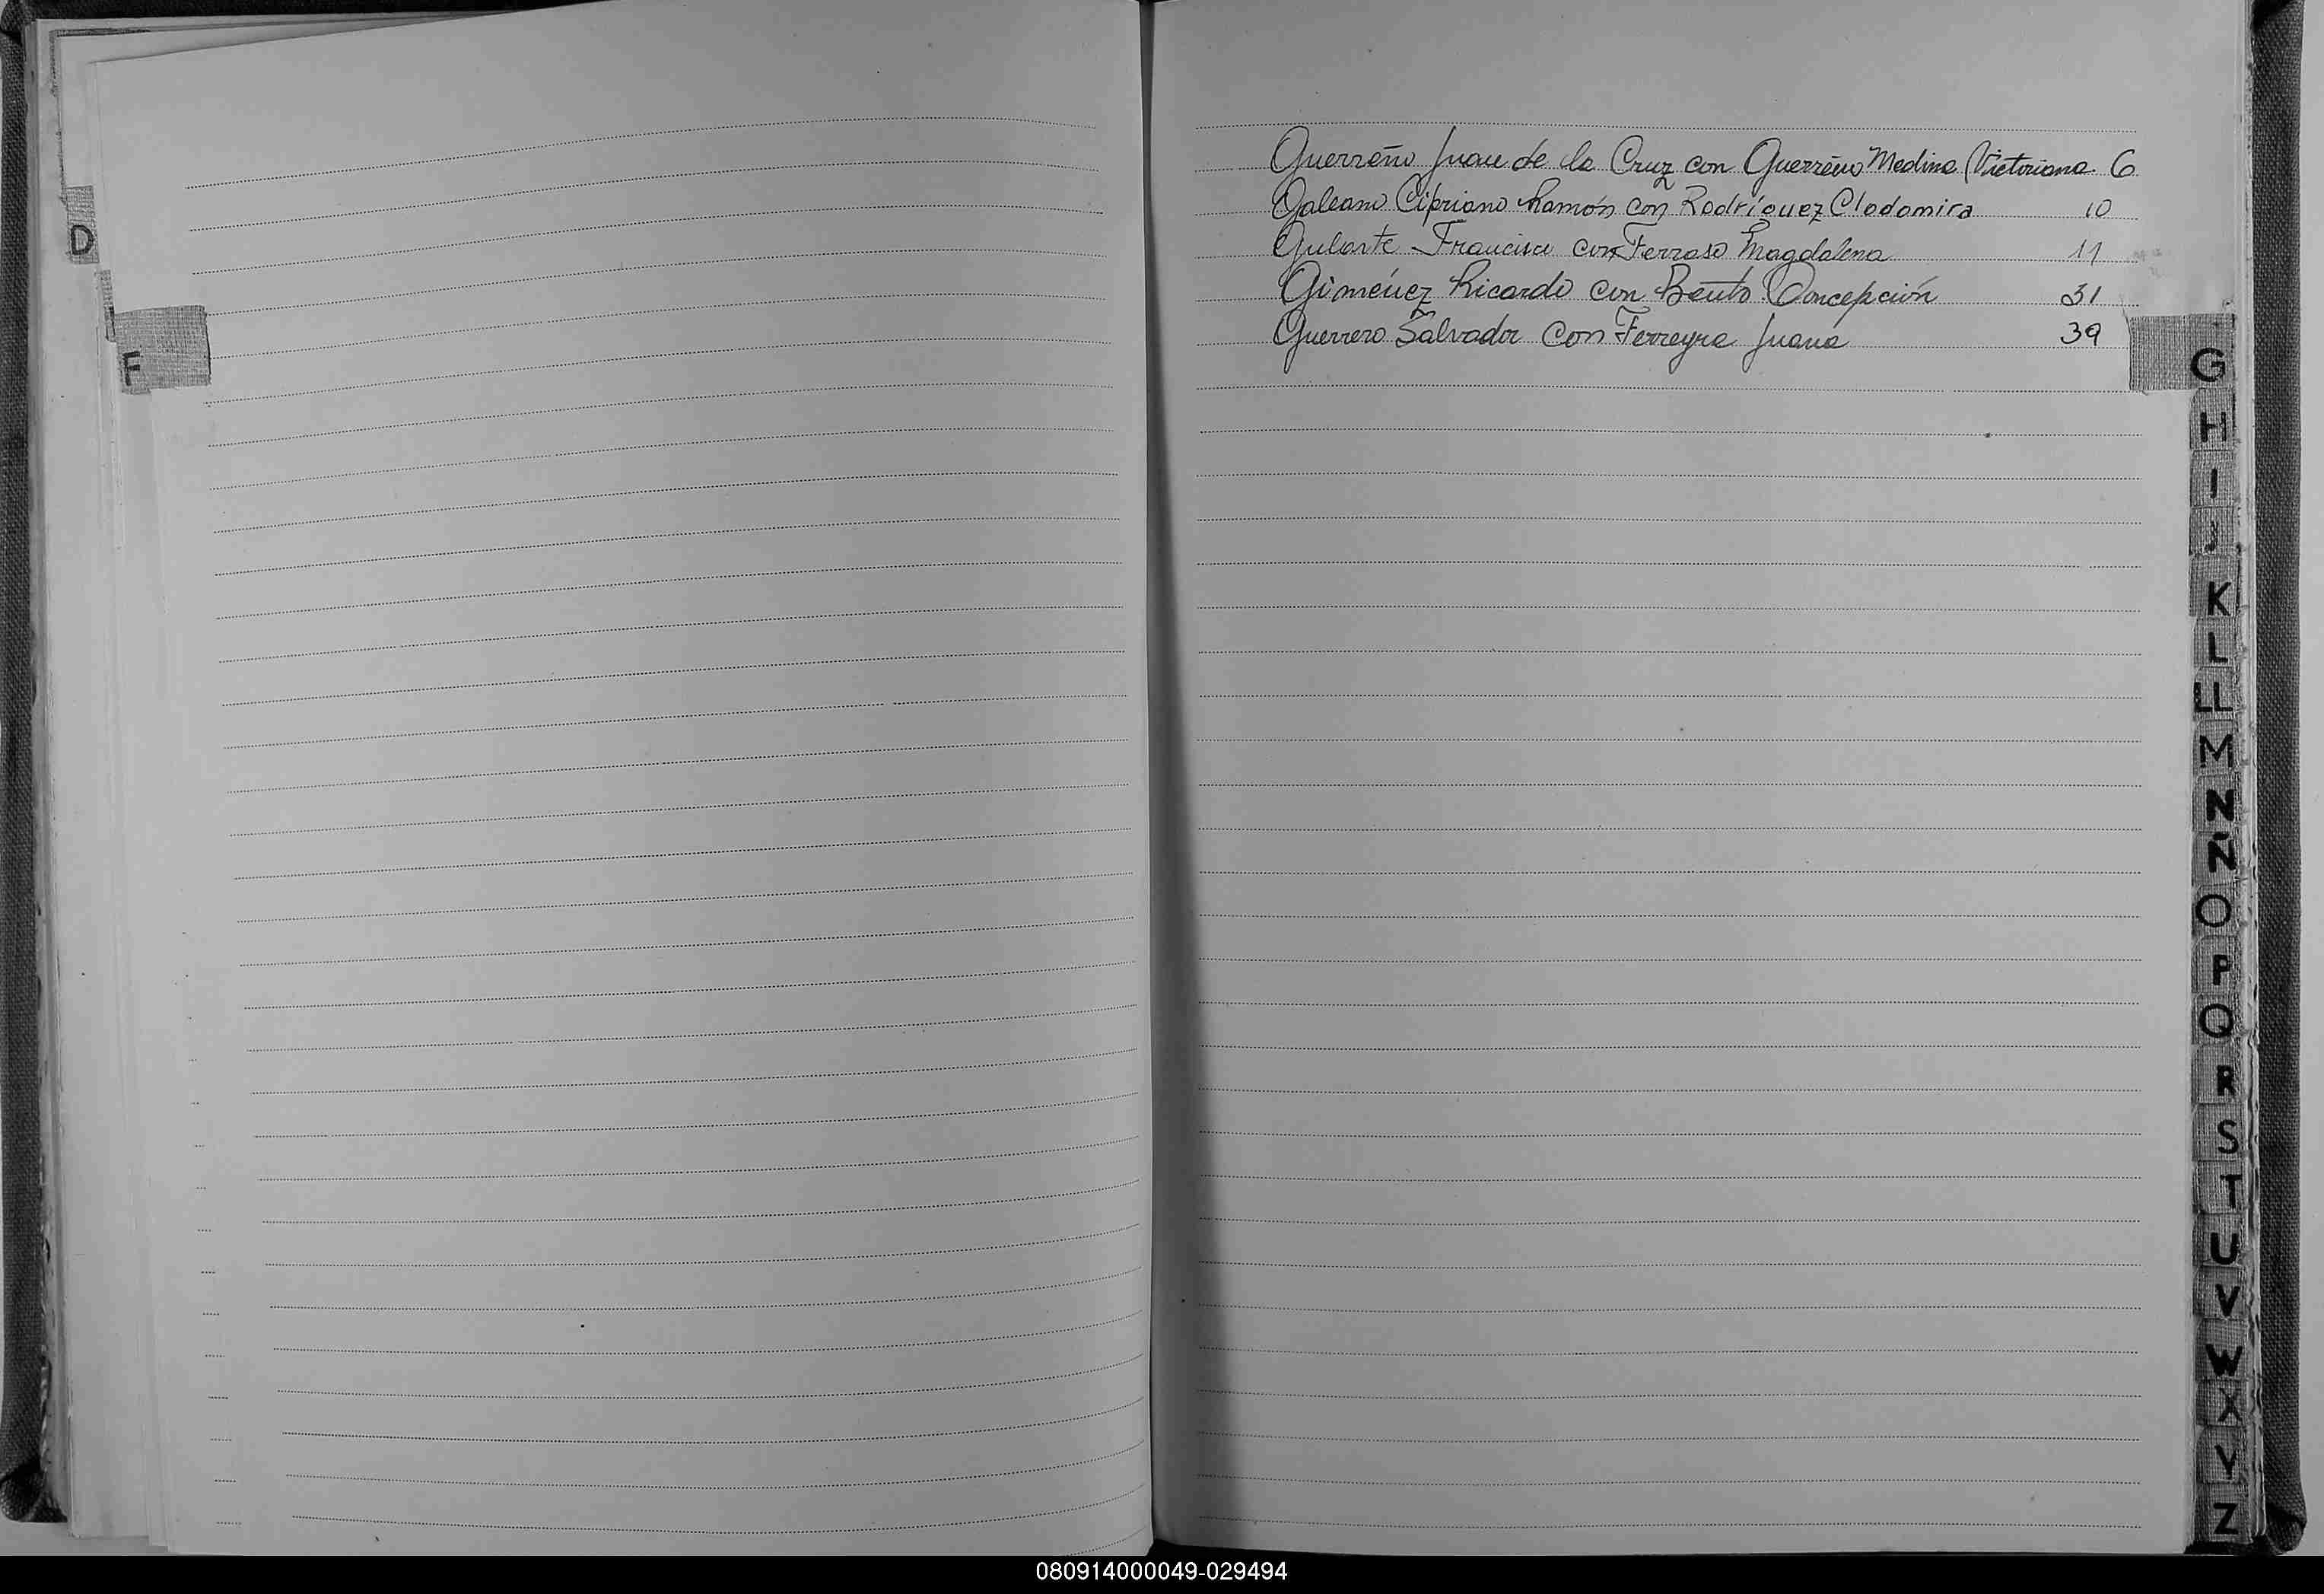 D
F
Guerreño Juan de la Cruz con Guerreño Medina Victoriana 6
Galeano Cipriano Ramón con Rodríguez Clodomira 10
Gularte Francisco con Ferraso Magdalena 11
Giménez Ricardo con Benito Concepción 31
Guerrero Salvador con Ferreyra Juana 39
G
H
I
J
K
L
LL
M
N
Ñ
O
P
Q
R
S
T
U
V
W
X
Y
Z
080914000049-029494